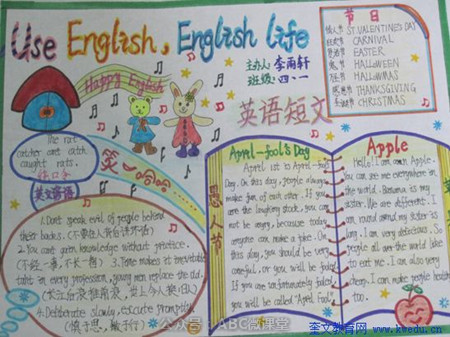 Use English, English life
主办人: 李雨轩
班级: 四、一
Happy English
节日
情人节 ST.VALENTINE'S DAY
狂欢节 CARNIVAL
复活节 EASTER
HALLOWEEN
HALLOWMAS
感恩节 THANKSGIVING
圣诞节 CHRISTMAS
英语短文
The rat
catcher can't catch
caught rats.
英文谚语
笑一哈哈
1. Don't speak evil of people behind
their backs. (不要在人背后讲坏话)
2. You can't gain knowledge without practice.
(不经一事,不长一智) 3. Time makes it inevitable
that in every profession, young men replace the old.
(长江后浪推前浪,世上今人换旧人)
4. Deliberate slowly, execute promptly.
(慎于思,敏于行)
愚人节
April-fool's Day
April 1st is April-fool's
Day. On this day, people always
make fun of each other. If you
are the laughing stock, you can
not be angry, because today
anyone can make a fake. On
this day, you should be very
careful, or you will be fooled
If you are unfortunately fooled,
you will be called "April Fool"
Apple
Hello! I am Apple.
You can see me everywhere in
the world. Banana is my
sister. We are different. I
am round and my sister is
long. I am very delicious. So
people all over the world like
to eat me. I am also very
cheap. I can make people healthy
too.
公众号 ABC微课堂
奎文教育网 www.kwedu.cn